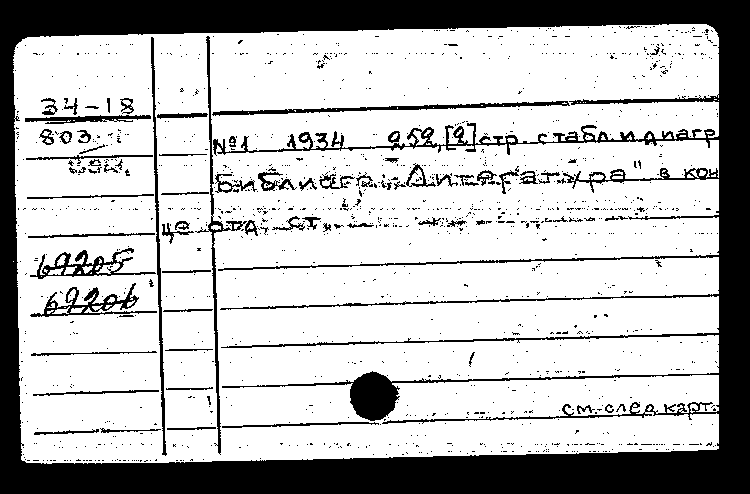 34-18
803
№1 1934. 252,[2] стр. с табл. и диагр
Библиагр: „Литература" в кон
це отд. ст.
69205
69206
см. след. карт.